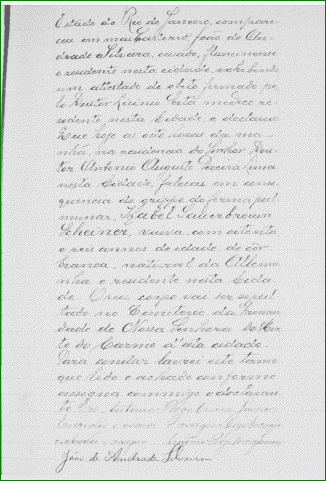 Estado do Rio de Janeiro, compare
ceu em meu Cartorio, João de An
drade Silveira, casado, fluminense
e residente nesta cidade, exhibindo
um attestado de obito firmado pe
lo Doutor Licinio medico re
sidente nesta Cidade, e declarou
que hoje as oito horas da ma
nhã, na residencia do Senhor Dou
tor Antonio Augusto Pereira Lima
nesta Cidade, faleceu em conse
quencia de grippe de forma pul
munar, Izabel Sauerbrown
viuva, com oitenta
e seis annos de idade, de côr
branca, natural da Allema
nha e residente nesta Cida
de. O seu corpo vai ser sepul
tado no Cemeterio da Irman
dade de Nossa Senhora do
do Carmo d'esta cidade.
Para constar lavrei este termo
que lido e achado conforme
assigna commigo o declaran
te Eu, Antonio
João de Andrade Silveira